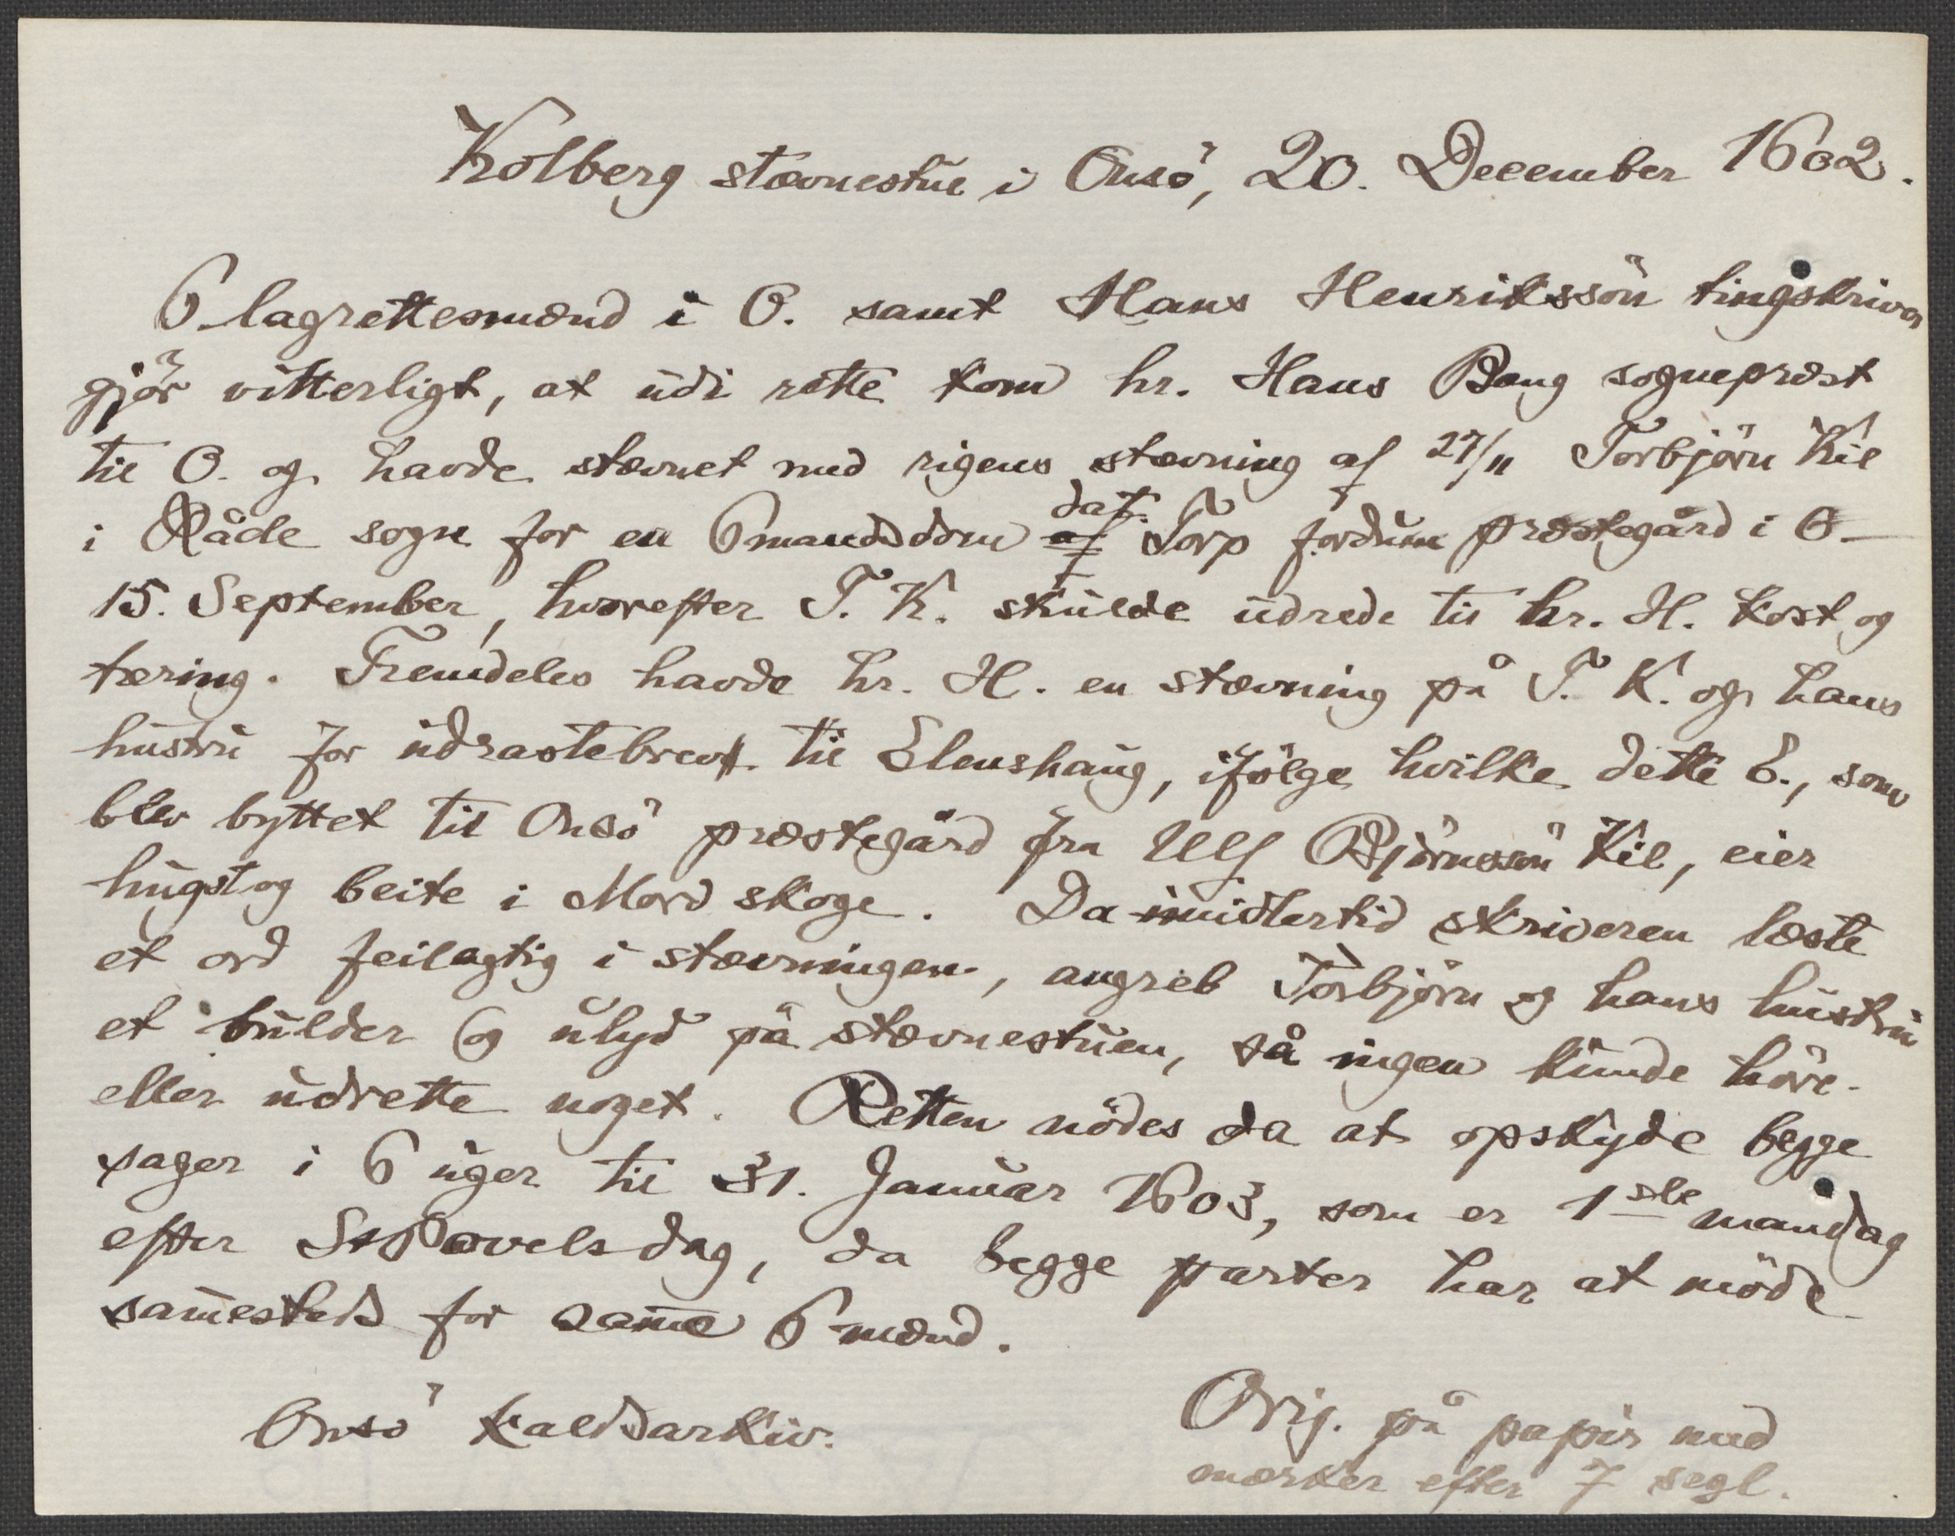 Kolberg stævnestue i Onsö, 20. December 1602.
6 lagrettesmænd i O. samt Hans Henrikssön tingskriver
gjör vitterligt, at udi rette kom hr. Hans Bang sogneprest
til O. og havde stævnet med rigens stævning af 27/11 Torbjörn Kil
i Råde sogn for en 6mandsdom af dat. Torp fordum prestegård i O
15. September, hvorefter T. K. skulde udrede til hr. H. kost og
tæring. Fremdeles havde hr. H. en stævning på T. K. og hans
hustru for udrastebrev til Elenshaug, ifölge hvilke dette E., som
blev byttet til Onsö præstegård fra Ulf Björnssön Kil, eier
hugst og beite i Mord skoge. Da imidlertid skriveren læste
et ord feilagtig i stævningen, angreb Torbjörn og hans hustru
et bulder og ulyd på stævnestuen, så ingen kunde höre
eller udrette noget. Retten nödes da at opskyde begge
sager i 6 uger til 31. Januar 1603, som er 1ste mandag
efter St Povels dag, da begge parter har at möde
samesteds for same 6 mænd.
Onsö kaldsarkiv.
Orig. på papir med
mærker efter 7 segl.